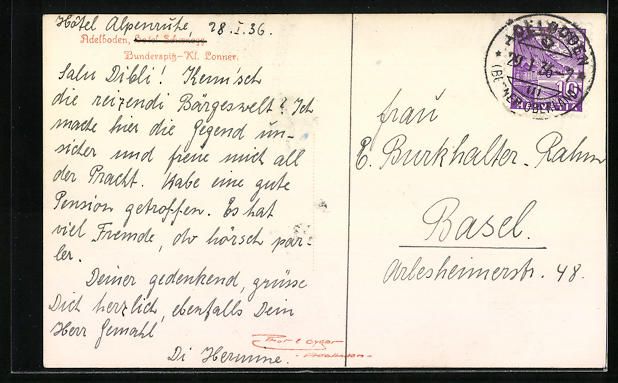 Hôtel Alpenruhe 28.I.36.
Adelboden, Hotel Schönegg
Bunderspitz—Kl. Lonner.
Salu Dibli! Kennsch
die reizendi Bärgeswelt? Ich
mache hier die Gegend un-
sicher und freue mich all
der Pracht. Habe eine gute
Pension getroffen. Es hat
viel Fremde, do hörsch par-
ler.
Deiner gedenkend, grüsse
Dich herzlich, ebenfalls Dein
Herr Gemahl
Di Hermine.
ADELBODEN
28.I.36
(BERNER OBERLAND)
10
Frau
E. Burkhalter-Rahm
Basel.
Arlesheimerstr. 48.
Phot. E. Gyger
Adelboden